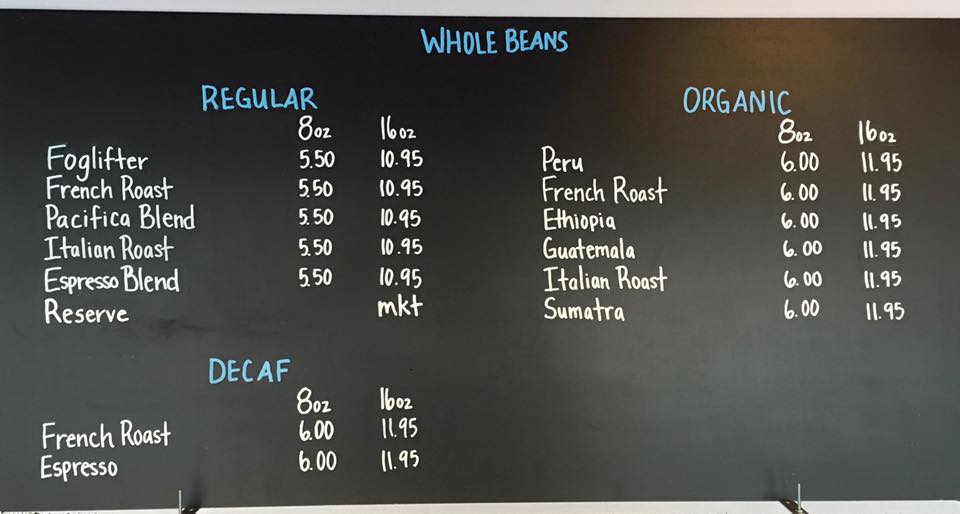 WHOLE BEANS
REGULAR
8oz 16oz
Foglifter 5.50 10.95
French Roast 5.50 10.95
Pacifica Blend 5.50 10.95
Italian Roast 5.50 10.95
Espresso Blend 5.50 10.95
Reserve mkt
DECAF
8oz 16oz
French Roast 6.00 11.95
Espresso 6.00 11.95
ORGANIC
8oz 16oz
Peru 6.00 11.95
French Roast 6.00 11.95
Ethiopia 6.00 11.95
Guatemala 6.00 11.95
Italian Roast 6.00 11.95
Sumatra 6.00 11.95